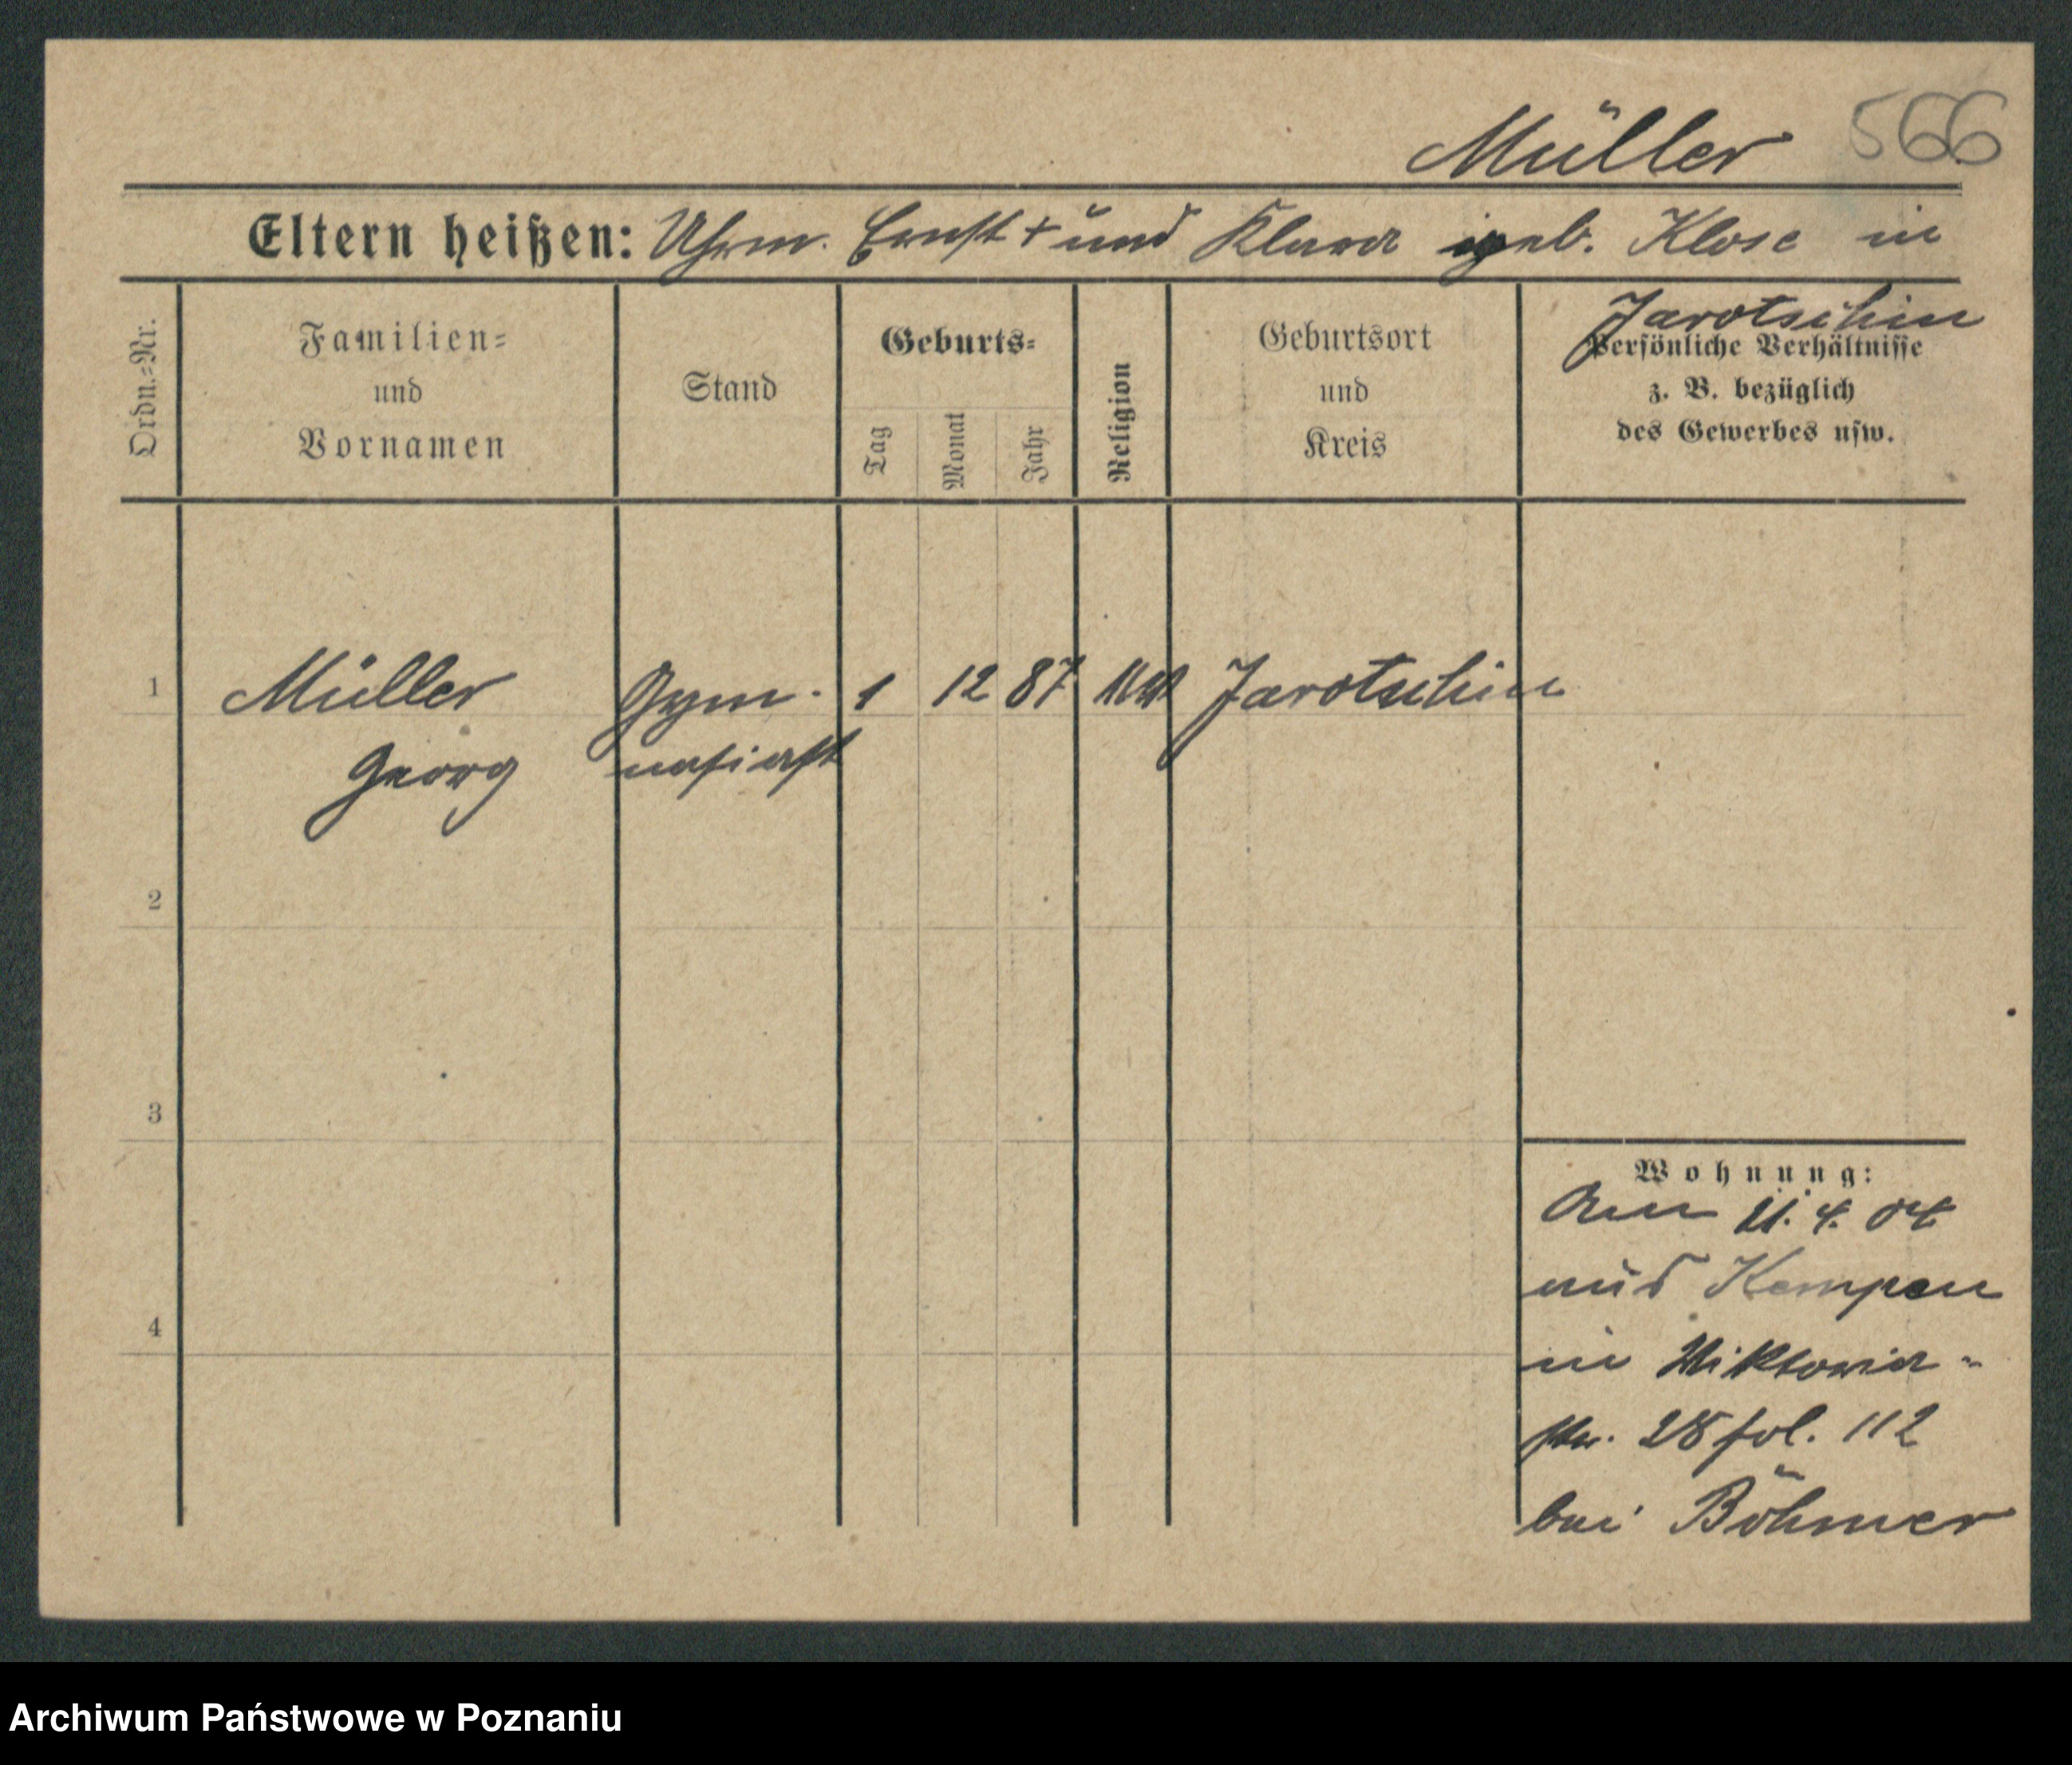 Müller 566
Eltern heißen: Uhrm. Ernst + und Klara geb. Klose in
Jarotschin
Ordn.=Nr.
Familien=
und
Vornamen
Stand
Geburts=
Tag
Monat
Jahr
Religion
Geburtsort
und
Kreis
Persönliche Verhältnisse
z. B. bezüglich
des Gewerbes usw.
1 Müller Gym- 1 12 87 Jarotschin
Georg nasiast
2
3
4
Wohnung:
Am 21. 4. 04
aus Kempen
in Viktoria-
str. 28 fol. 112
bei Böhmer
Archiwum Państwowe w Poznaniu